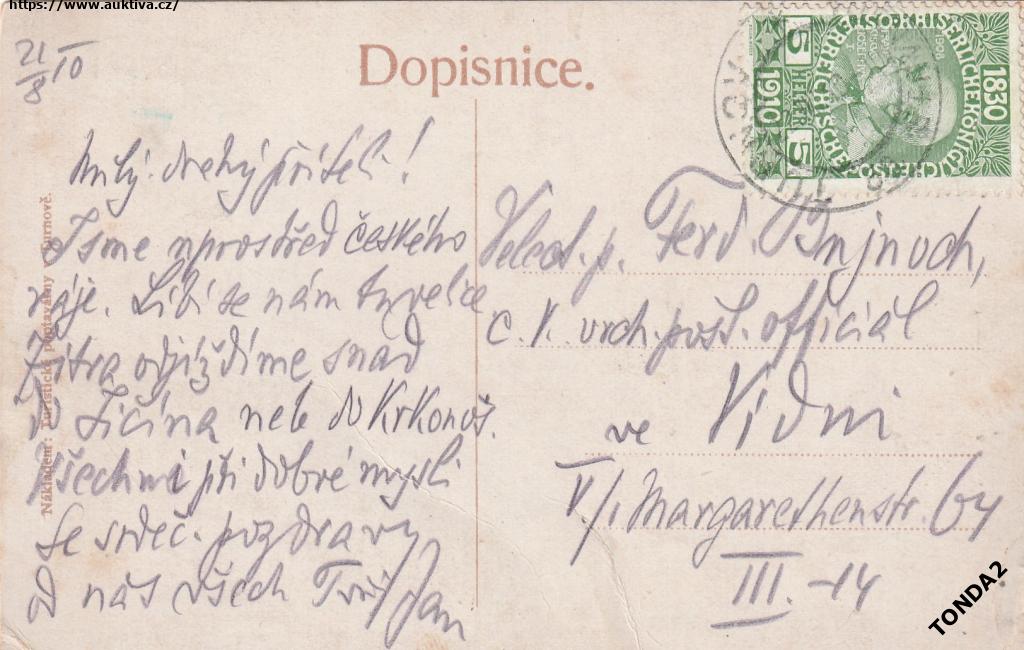 https://www.auktiva.cz/
21/8 10
Dopisnice.
1830
1910
5 HELLER 5
Milý drahý příteli!
Jsme uprostřed českého
ráje. Líbí se nám tu velice
Zítra odjíždíme snad
do Jičína neb do Krkonoš.
Všechni při dobré mysli
Se srdeč. pozdravy
od nás všech Tvůj Jan
Nákladem: Turistické Turnově.
Velect. p. Ferd.
c. k. vrch. pošt. officiál
ve Vídni
V/1 Margarethenstr. 64
III. -14
TONDA2